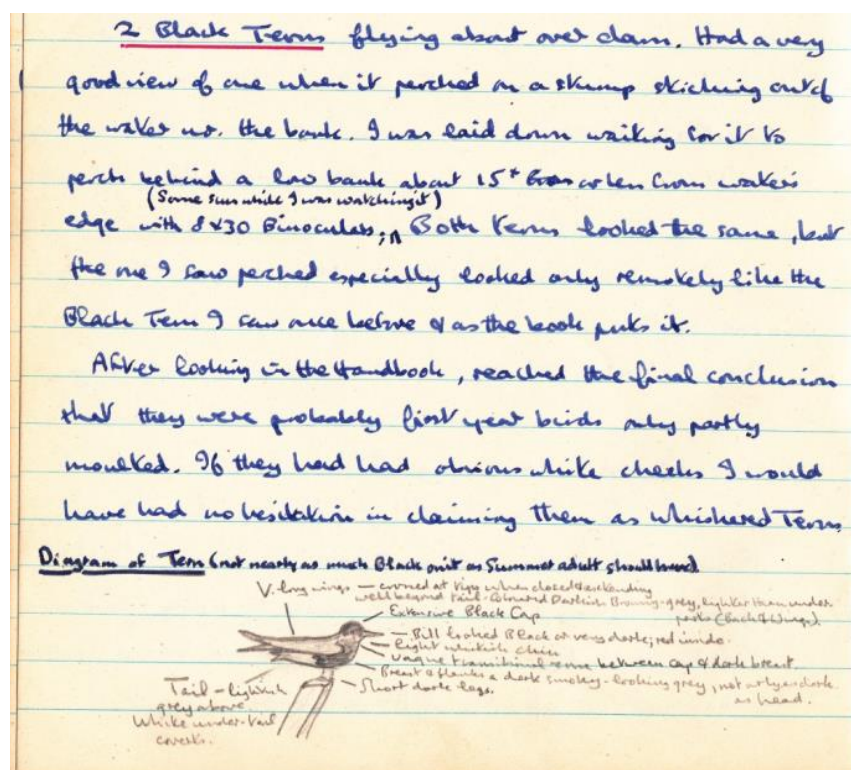 2 Black Terns flying about over dam. Had a very
good view of one when it perched on a stump sticking out of
the water nr. the bank. I was laid down waiting for it to
perch behind a low bank about 15ˣ or less from water's
(Same sun while I was watching it)
edge with 8x30 Binoculars; Both Terns looked the same, but
the one I saw perched especially looked only remotely like the
Black Tern I saw once before & as the book puts it.
After looking in the Handbook, reached the final conclusion
that they were probably first year birds only partly
moulted. If they had had obvious white cheeks I would
have had no hesitation in claiming them as Whiskered Terns
Diagram of Tern (not nearly as much Black on it as Summer adult should have)
V. long wings – crossed at tips when closed & extending
well beyond tail. Coloured Darkish Browny-grey, lighter than under
parts (Back & Wings).
Extensive Black Cap
Bill looked Black or very dark; red inside.
Light whitish chin
Vague transitional zone between cap & dark breast.
Breast & flanks a dark smokey-looking grey, not as dark
as head.
Short dark legs.
Tail – lightish
grey above
White under-tail
coverts.